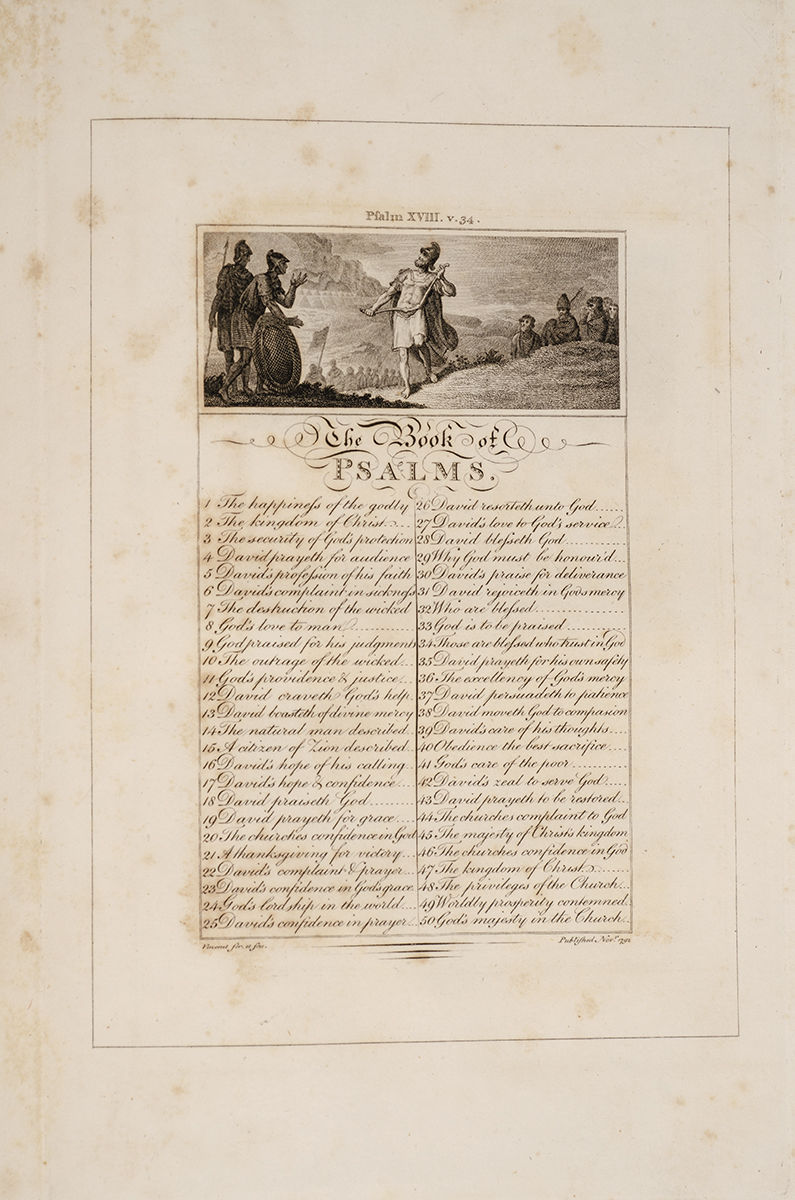 Pſalm XVIII. v. 34.
The Book of
PSALMS.
1 The happineſs of the godly
2 The kingdom of Christ...
3 The security of God's protection
4 David prayeth for audience
5 David's profeſsion of his faith
6 David's complaint in sickneſs
7 The destruction of the wicked
8 God's love to man..........
9 God praised for his judgment
10 The outrage of the wicked...
11 God's providence & justice...
12 David craveth God's help.
13 David boasteth of divine mercy
14 The natural man described..
15 A citizen of Zion described..
16 David's hope of his calling...
17 David's hope & confidence....
18 David praiseth God.........
19 David prayeth for grace....
20 The churches confidence in God
21 A thanksgiving for victory...
22 David's complaint & prayer...
23 David's confidence in God's grace
24 God's lordship in the world....
25 David's confidence in prayer...
26 David resorteth unto God......
27 David's love to God's service...
28 David bleſseth God..........
29 Why God must be honour'd...
30 David's praise for deliverance
31 David rejoiceth in God's mercy
32 Who are bleſsed..............
33 God is to be praised.........
34 Those are bleſsed who trust in God
35 David prayeth for his own safety
36 The excellency of God's mercy
37 David persuadeth to patience
38 David moveth God to compasion
39 David's care of his thoughts....
40 Obedience the best sacrifice....
41 God's care of the poor...........
42 David's zeal to serve God.....
43 David prayeth to be restored...
44 The churches complaint to God
45 The majesty of Christ's kingdom
46 The churches confidence in God
47 The kingdom of Christ........
48 The privileges of the Church...
49 Worldly prosperity contemned.
50 God's majesty in the Church..
Publiſhed Novr. 1791